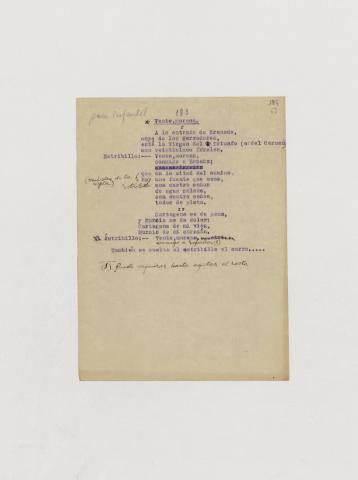 para infantil
183
184
Vente, morena.
I
A la entrada de Granada,
calle de los Herradores,
está la Virgen del Triunfo (o: del Carmen)
con veinticinco faroles.
Estribillo:-- Vente, morena,
conmigo a España;
que en la mitad del camino.
hay una fuente que mana,
con cuatro caños
de agua salada,
con cuatro caños,
todos de plata.
II
Cartagena me da pena,
y Murcia me da dolor;
Cartagena de mi vida,
Murcia de mi corazón.
Estribillo:-- Vente, morena,
También se suelta el estribillo al corro.....
(1) Puede seguirse hasta agotar el resto